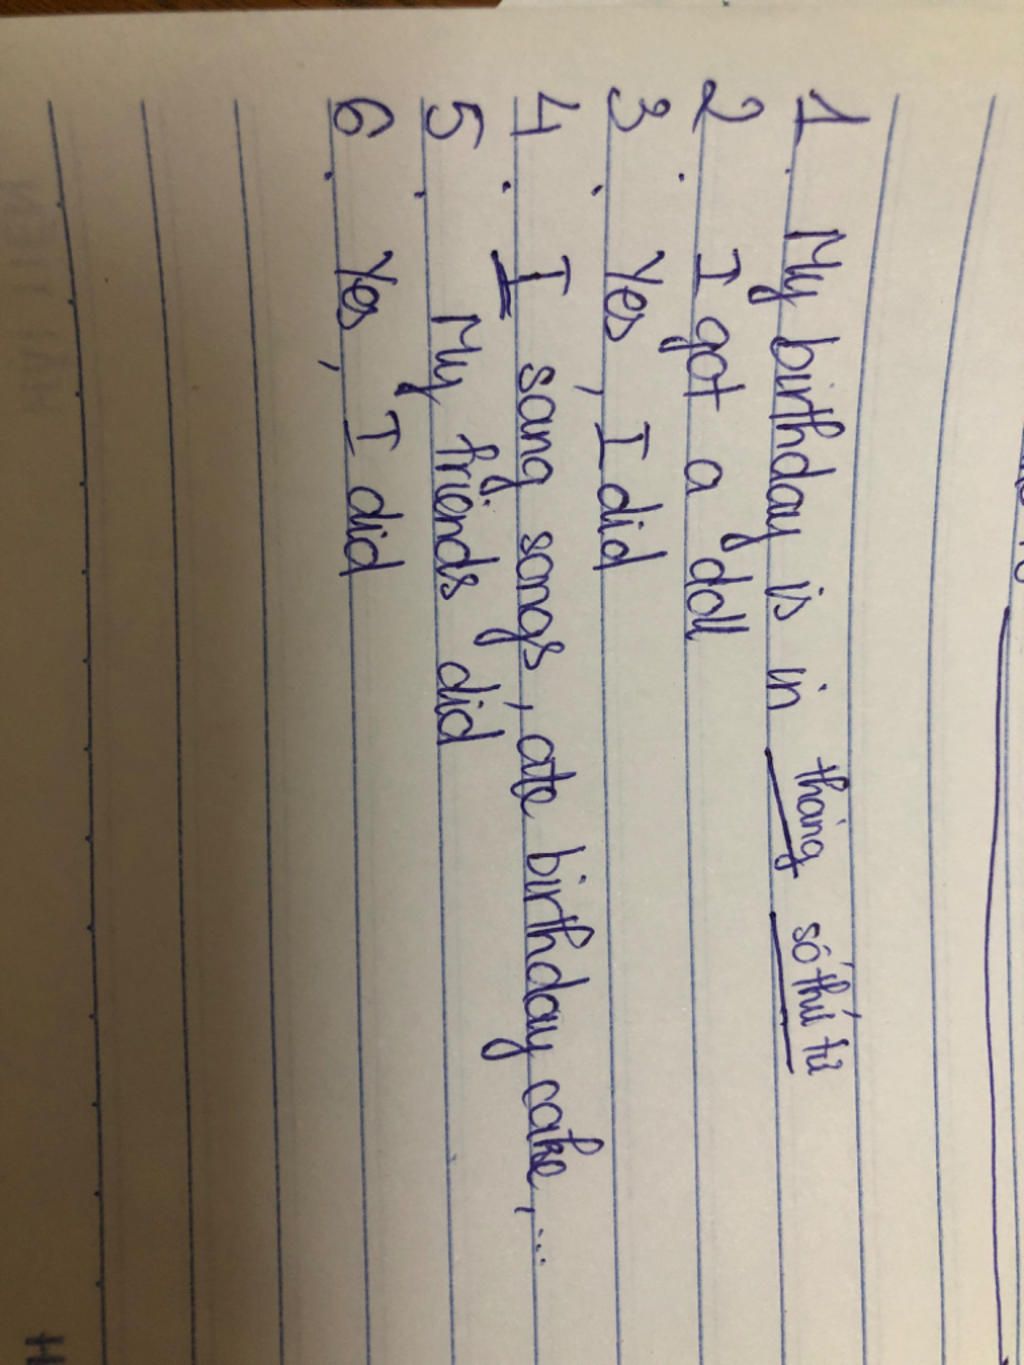 1. My birthday is in tháng số thứ tự
2. I got a doll
3. Yes, I did
4. I sang songs, ate birthday cake,...
5. My friends did
6. Yes, I did